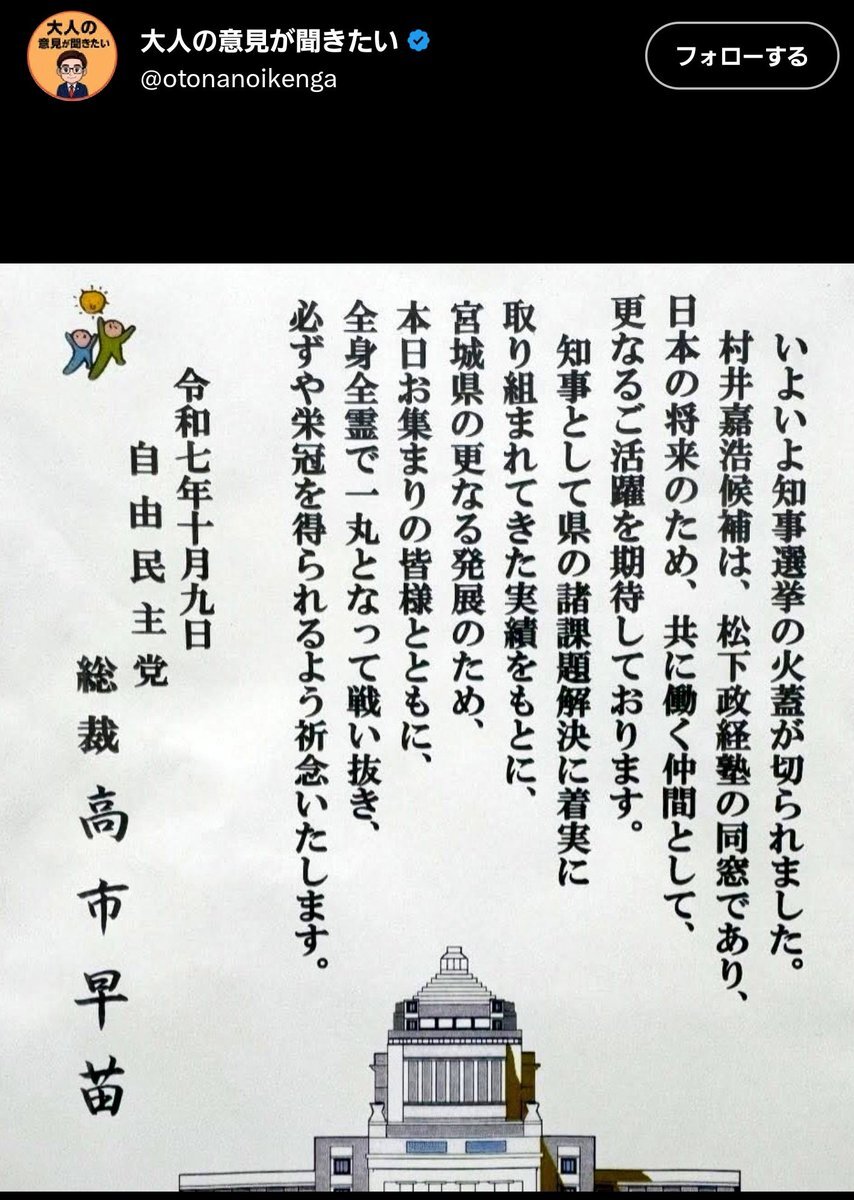 大人の意見が聞きたい
@otonanoikenga
フォローする
大人の
意見が聞きたい
いよいよ知事選挙の火蓋が切られました。
村井嘉浩候補は、松下政経塾の同窓であり、
日本の将来のため、共に働く仲間として、
更なるご活躍を期待しております。
知事として県の諸課題解決に着実に
取り組まれてきた実績をもとに、
宮城県の更なる発展のため、
本日お集まりの皆様とともに、
全身全霊で一丸となって戦い抜き、
必ずや栄冠を得られるよう祈念いたします。
令和七年十月九日
自由民主党
総裁高市早苗